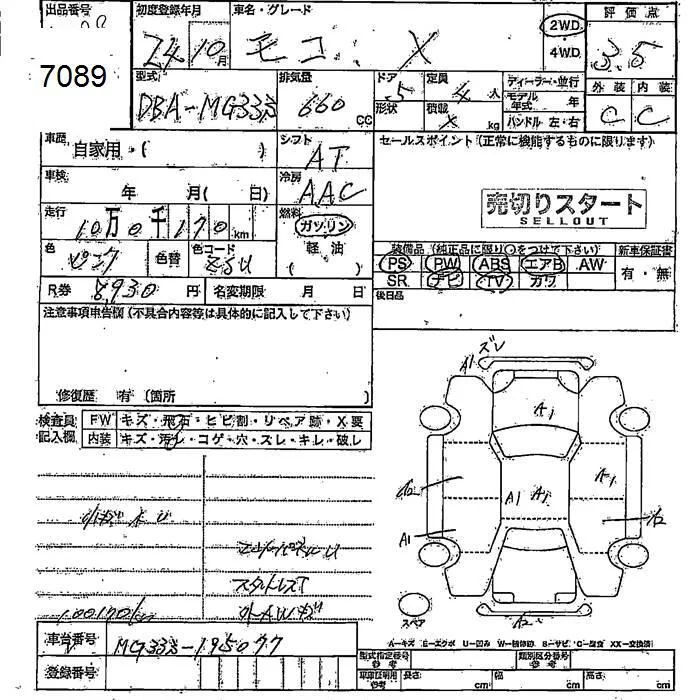 出品番号 初度登録年月 車名・グレード 評価点
7089 24 10月 モコ X 2WD. 4WD. 3.5
型式 排気量 ドア 定員 ディーラー・並行 外装 内装
DBA-MG33S 660 CC 5 4人 モデル年式 年 C C
形状 積載 X kg ハンドル 左・右
車歴 自家用・( ) シフト AT セールスポイント (正常に機能するものに限ります)
車検 年 月( 日) 冷房 AAC
売切りスタート
SELLOUT
走行 10万0千170km 燃料 ガソリン 軽油 ( )
色 ピンク 色替 色コード ZSU
装備品 (純正品に限り○をつけて下さい) 新車保証書
PS PW ABS エアB AW 有・無
SR ナビ TV カワ
R券 8930円 名変期限 月 日 後日品
注意事項申告欄 (不具合内容等は具体的に記入して下さい)
修復歴 有 (箇所 )
検査員記入欄 FW キズ・飛石・ヒビ割・リペア跡・X要
内装 キズ・汚レ・コゲ・穴・スレ・キレ・破レ
ズレ
A1
A1
A2 A1 A1 A1
A1 A2
スペア A2
スタットレスT
100170km
A-キズ E-エクボ U-凹み W-補修跡 S-サビ C-腐食 XX-交換済
車台番号 MG33S-195077
登録番号
型式指定番号 参考 類別区分番号 参考
車庫証明用 参考 長さ cm 幅 cm 高さ cm